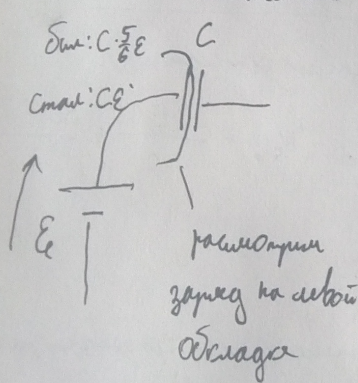 был: C·5/6 ℰ
C
стал: Cℰ
ℰ
рассмотрим
заряд на левой
обкладке